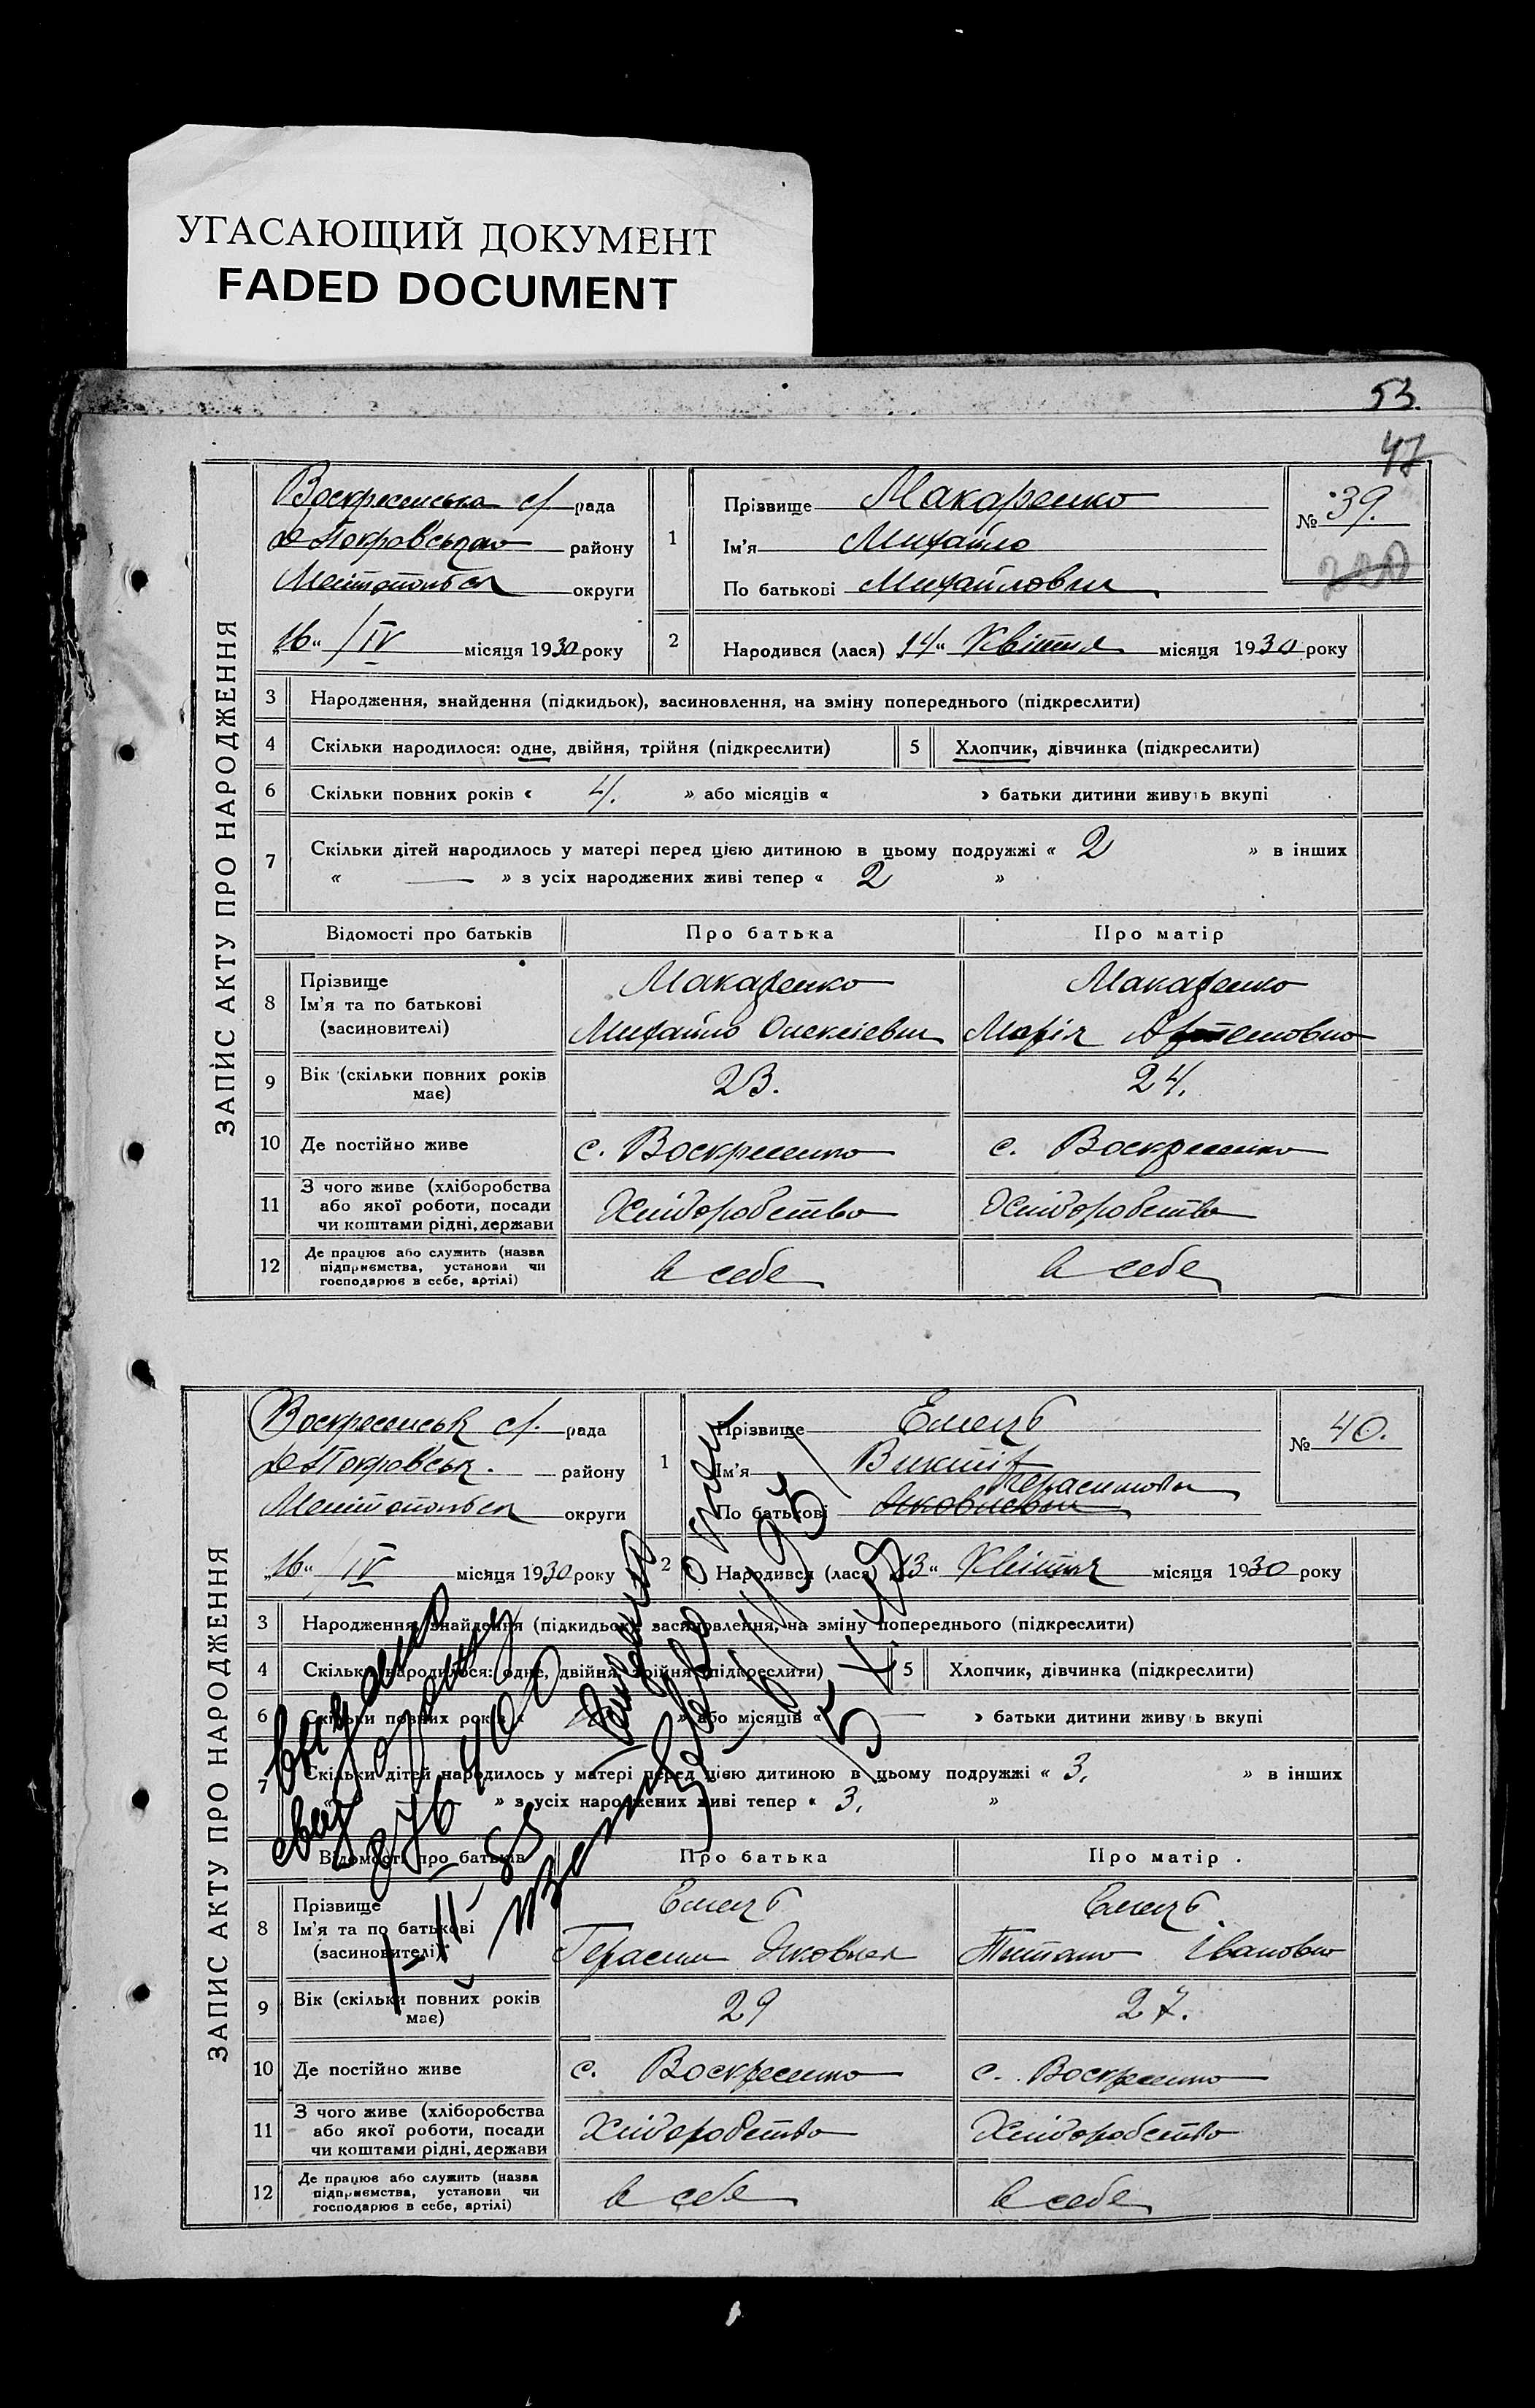 УГАСАЮЩИЙ ДОКУМЕНТ
FADED DOCUMENT
53.
47
ЗАПИС АКТУ ПРО НАРОДЖЕННЯ
Воскресенська с/ рада
району
округи
1
Прізвище Макаренко
Ім'я Михайло
По батькові Михайлович
№ 39.
200
„16“ / IV місяця 1930 року
2
Народився (лася) 14“ Квітня місяця 1930 року
3 Народження, знайдення (підкидьок), засиновлення, на зміну попереднього (підкреслити)
4 Скільки народилося: одне, двійня, трійня (підкреслити) 5 Хлопчик, дівчинка (підкреслити)
6 Скільки повних років « 4. » або місяців « » батьки дитини живуть вкупі
7 Скільки дітей народилось у матері перед цією дитиною в цьому подружжі « 2 » в інших
« — » з усіх народжених живі тепер « 2 »
Відомості про батьків Про батька Про матір
8 Прізвище Макаренко Макаренко
Ім'я та по батькові
(засиновителі) Михайло Олексієвич Марія Артемовно
9 Вік (скільки повних років має) 23. 24.
10 Де постійно живе с. Воскресенко с. Воскресенко
11 З чого живе (хліборобства
або якої роботи, посади
чи коштами рідні, держави Хліборобство Хліборобство
12 Де працює або служить (назва
підприємства, установи чи
господарює в себе, артілі) в себе в себе
ЗАПИС АКТУ ПРО НАРОДЖЕННЯ
Воскресенськ с/. рада
району
округи
1
Прізвище Емець
Ім'я Виктір
Герасимович
По батькові Яковлевич
№ 40.
„16“ / IV місяця 1930 року
2
Народився (лася) 13“ Квітня місяця 1930 року
3 Народження, знайдення (підкидьок), засиновлення, на зміну попереднього (підкреслити)
4 Скільки народилося: одне, двійня, трійня (підкреслити) 5 Хлопчик, дівчинка (підкреслити)
6 Скільки повних років « » або місяців « — » батьки дитини живуть вкупі
7 Скільки дітей народилось у матері перед цією дитиною в цьому подружжі « 3. » в інших
« » з усіх народжених живі тепер « 3. »
Відомості про батьків Про батька Про матір
8 Прізвище Емець Емець
Ім'я та по батькові
(засиновителі) Герасим Яковлев Титано Івановно
9 Вік (скільки повних років має) 29 27.
10 Де постійно живе с. Воскресенко с. Воскресенко
11 З чого живе (хліборобства
або якої роботи, посади
чи коштами рідні, держави Хліборобство Хліборобство
12 Де працює або служить (назва
підприємства, установи чи
господарює в себе, артілі) в себе в себе